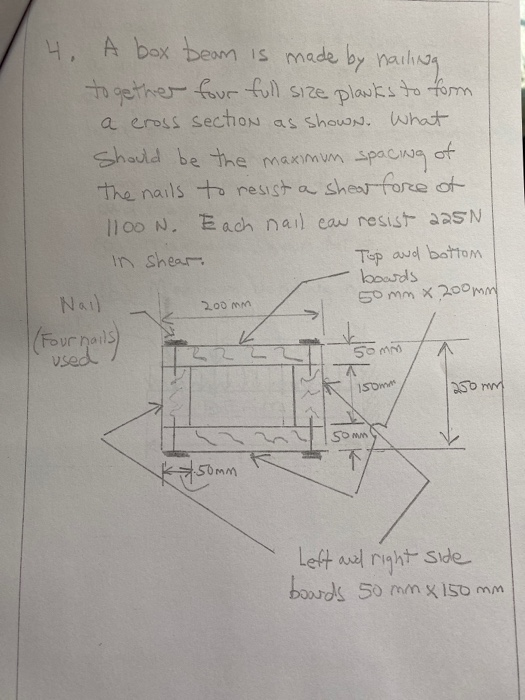 4. A box beam is made by nailing
together four full size planks to form
a cross section as shown. What
should be the maximum spacing of
the nails to resist a shear force of
1100 N. Each nail can resist 225N
in shear.
Top and bottom
boards
50 mm x 200 mm
Nail
(Four nails)
used
200 mm
50 mm
150mm
250 mm
50 mm
50mm
Left and right side
boards 50 mm x 150 mm